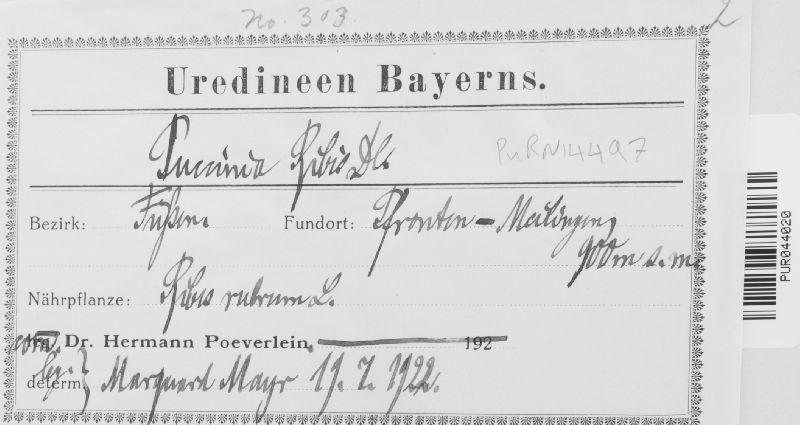 No. 303.
2
Uredineen Bayerns.
Puccinia Ribis DC.
PURN14497
Bezirk: Füssen. Fundort: Pfronten - Meilingen,
900 m s. m.
Nährpflanze: Ribes rubrum L.
com. Dr. Hermann Poeverlein. 192
leg. }
determ. Marquard Mayr 19. 7. 1922.
PUR044020